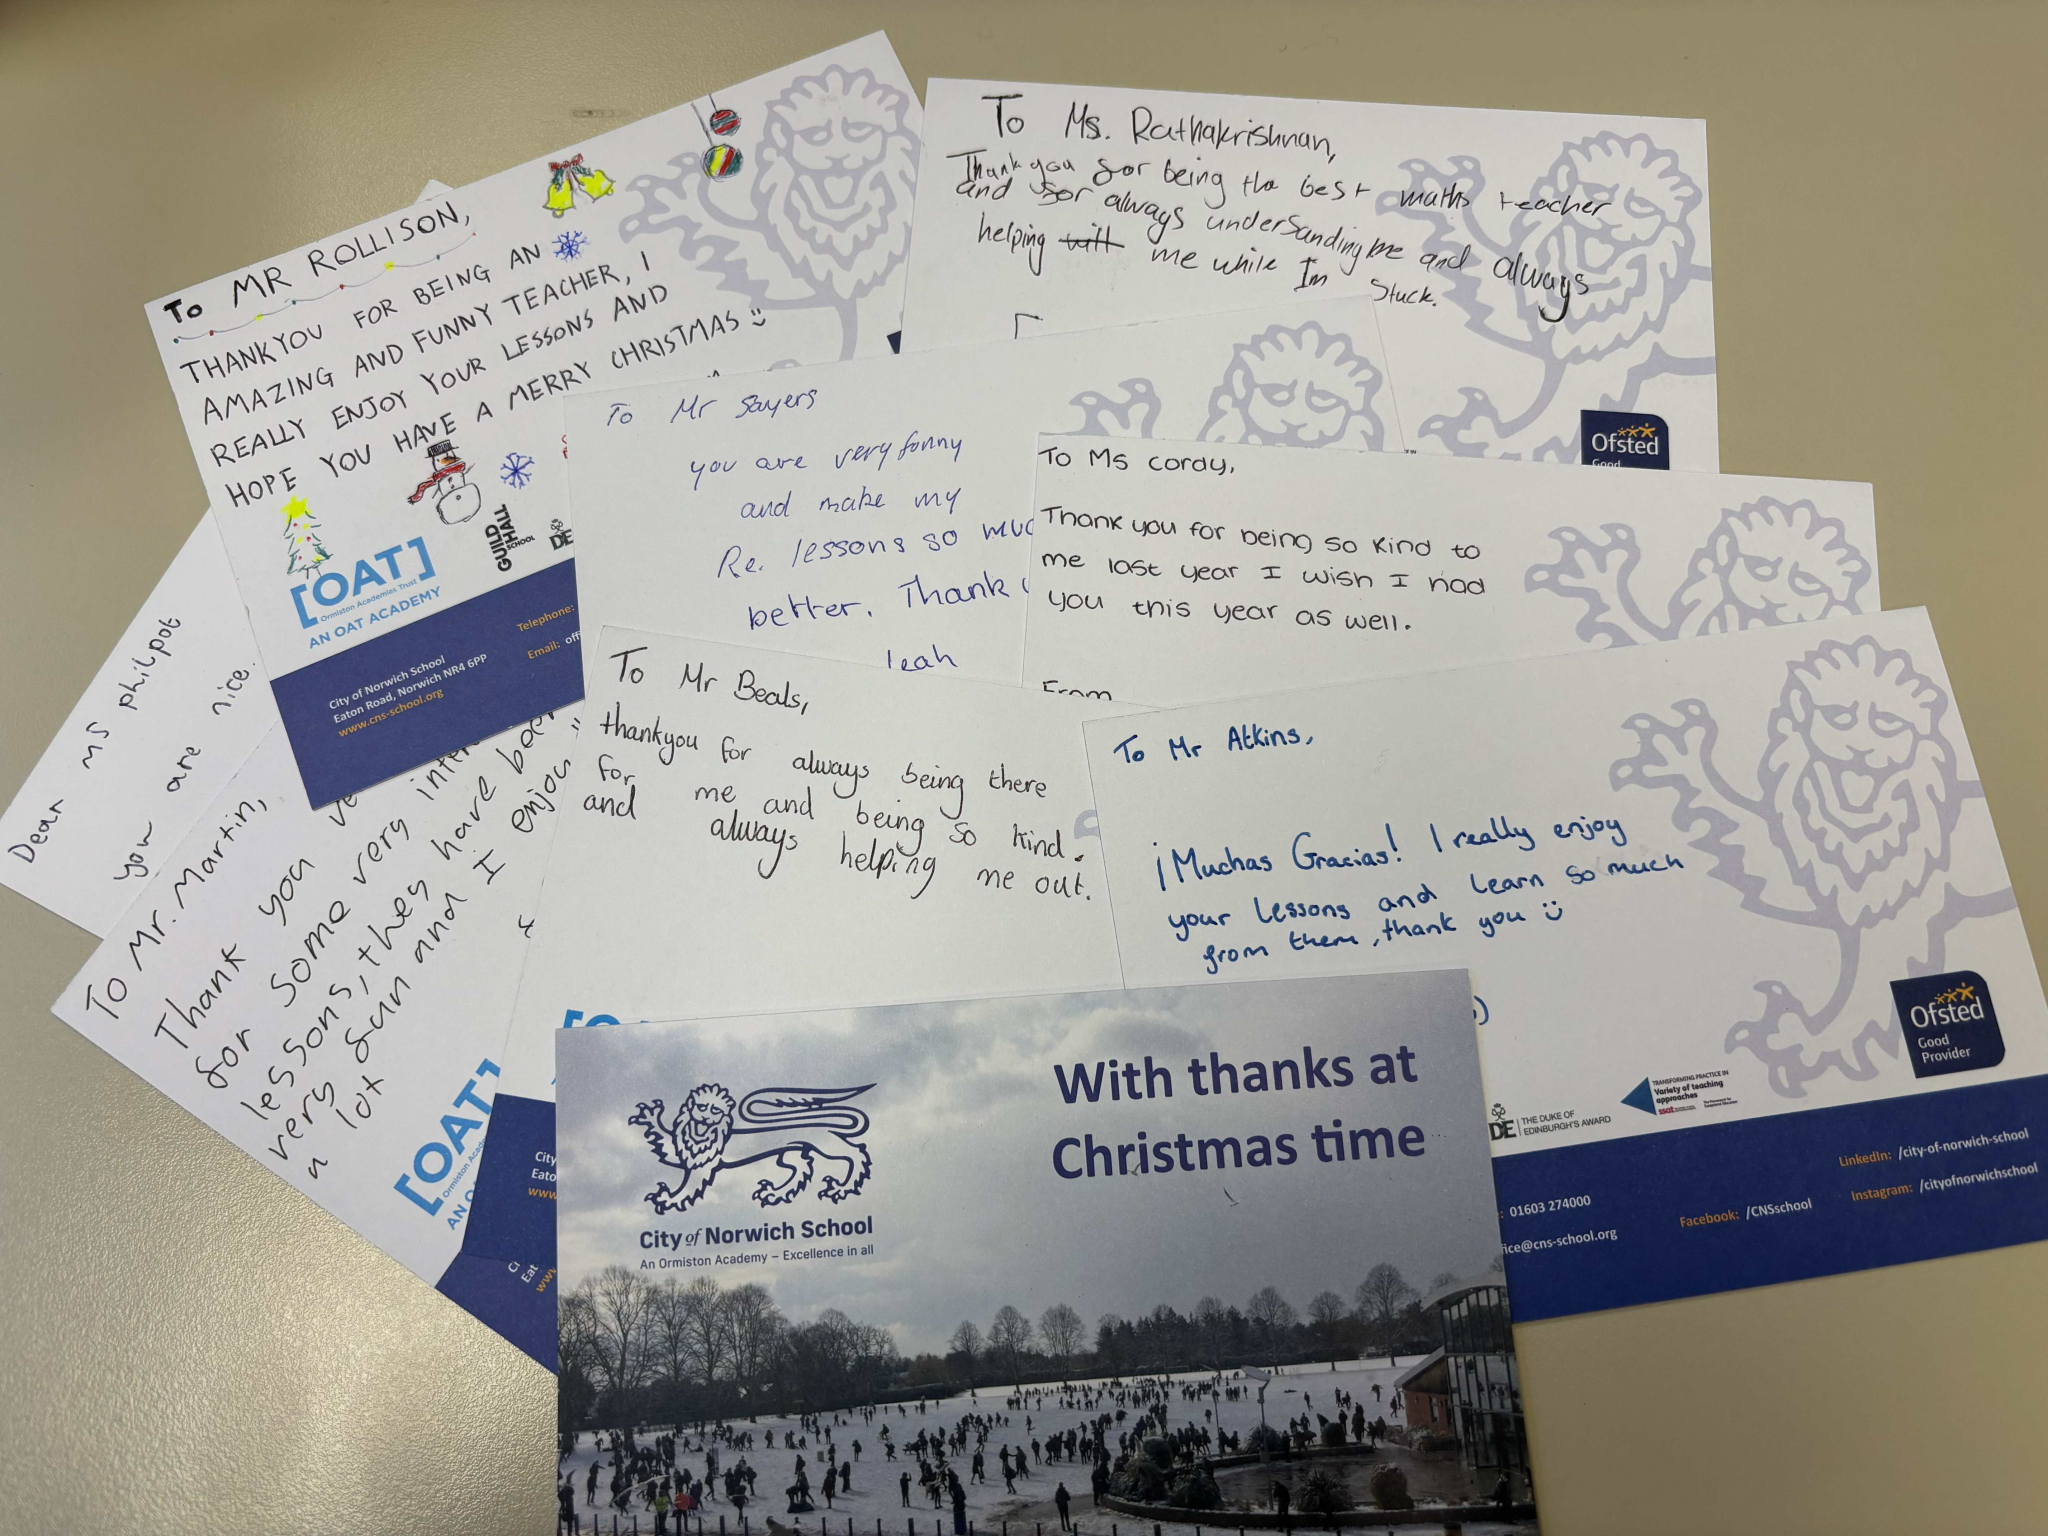 To MR ROLLISON,
THANKYOU FOR BEING AN
AMAZING AND FUNNY TEACHER, I
REALLY ENJOY YOUR LESSONS AND
HOPE YOU HAVE A MERRY CHRISTMAS
[OAT]
Ormiston Academies Trust
AN OAT ACADEMY
GUILD
HALL
SCHOOL
DE
City of Norwich School
Eaton Road, Norwich NR4 6PP
www.cns-school.org
Telephone:
Email: offi
To Ms. Rathakrishnan,
Thank you for being the best maths teacher
and for always undersanding me and always
helping me while Im stuck.
Ofsted
Good
To Mr Sayers
you are very funny
and make my
Re. lessons so muc
better. Thank
leah
To Ms cordy,
Thank you for being so kind to
me last year I wish I had
you this year as well.
From
Dear ms philpot
you are nice.
To Mr. Martin,
Thank you
for some very inter
lessons, they have been
very fun and I enjoy
a lot
[OAT]
Ormiston Acade
To Mr Beals,
thankyou for always being there
for me and being so kind.
and always helping me out.
City
Eato
www.
Ci
Eat
www
To Mr Atkins,
¡Muchas Gracias! I really enjoy
your lessons and learn so much
from them, thank you
Ofsted
Good
Provider
DE THE DUKE OF
EDINBURGH'S AWARD
TRANSFORMING PRACTICE IN
Variety of teaching
approaches
ssat
: 01603 274000
ice@cns-school.org
Facebook: /CNSschool
LinkedIn: /city-of-norwich-school
Instagram: /cityofnorwichschool
With thanks at
Christmas time
City of Norwich School
An Ormiston Academy – Excellence in all